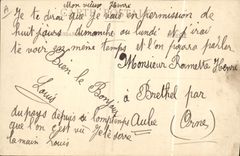 Mon vieux Henri
Je te dirai que je vais en permission de
huit jours dimanche ou lundi et j'irai
te voir en même temps et l'on pourra parler
Bien le Bonjour
Louis
Monsieur Ramette Henri
à Brethel par
Aube
(Orne)
du pays depuis longtemps
que l'on est vu Je te serre
la main Louis